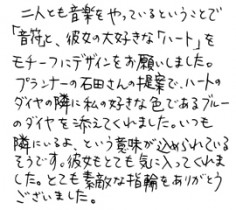 二人とも音楽をやっているということで
「音符」と、彼女の大好きな「ハート」を
モチーフにデザインをお願いしました。
プランナーの石田さんの提案で、ハートの
ダイヤの隣に私の好きな色であるブルー
のダイヤを添えてくれました。いつも
隣にいるよ、という意味が込められている
そうです。彼女もとても気に入ってくれま
した。とても素敵な指輪をありがとう
ございました。